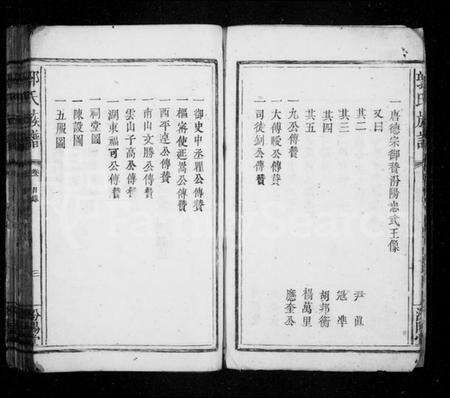 一唐德宗御贊汾陽忠武王像
又曰
其二 尹眞
其三 寇準
其四 胡邦衡
其五 楊萬里
一九公傳贊 應奎公
一大傅公傳贊
一司徒釗公傳贊
一御史中丞公傳贊
一樞宻使延嵩公傳贊
一西平逵公傳贊
一南山文勝公傳贊
一雲山子高公傳贊
一湖東福可公傳贊
一祠堂圖
一陳設圖
一五服圖
郭氏族譜
卷
三
汾陽堂